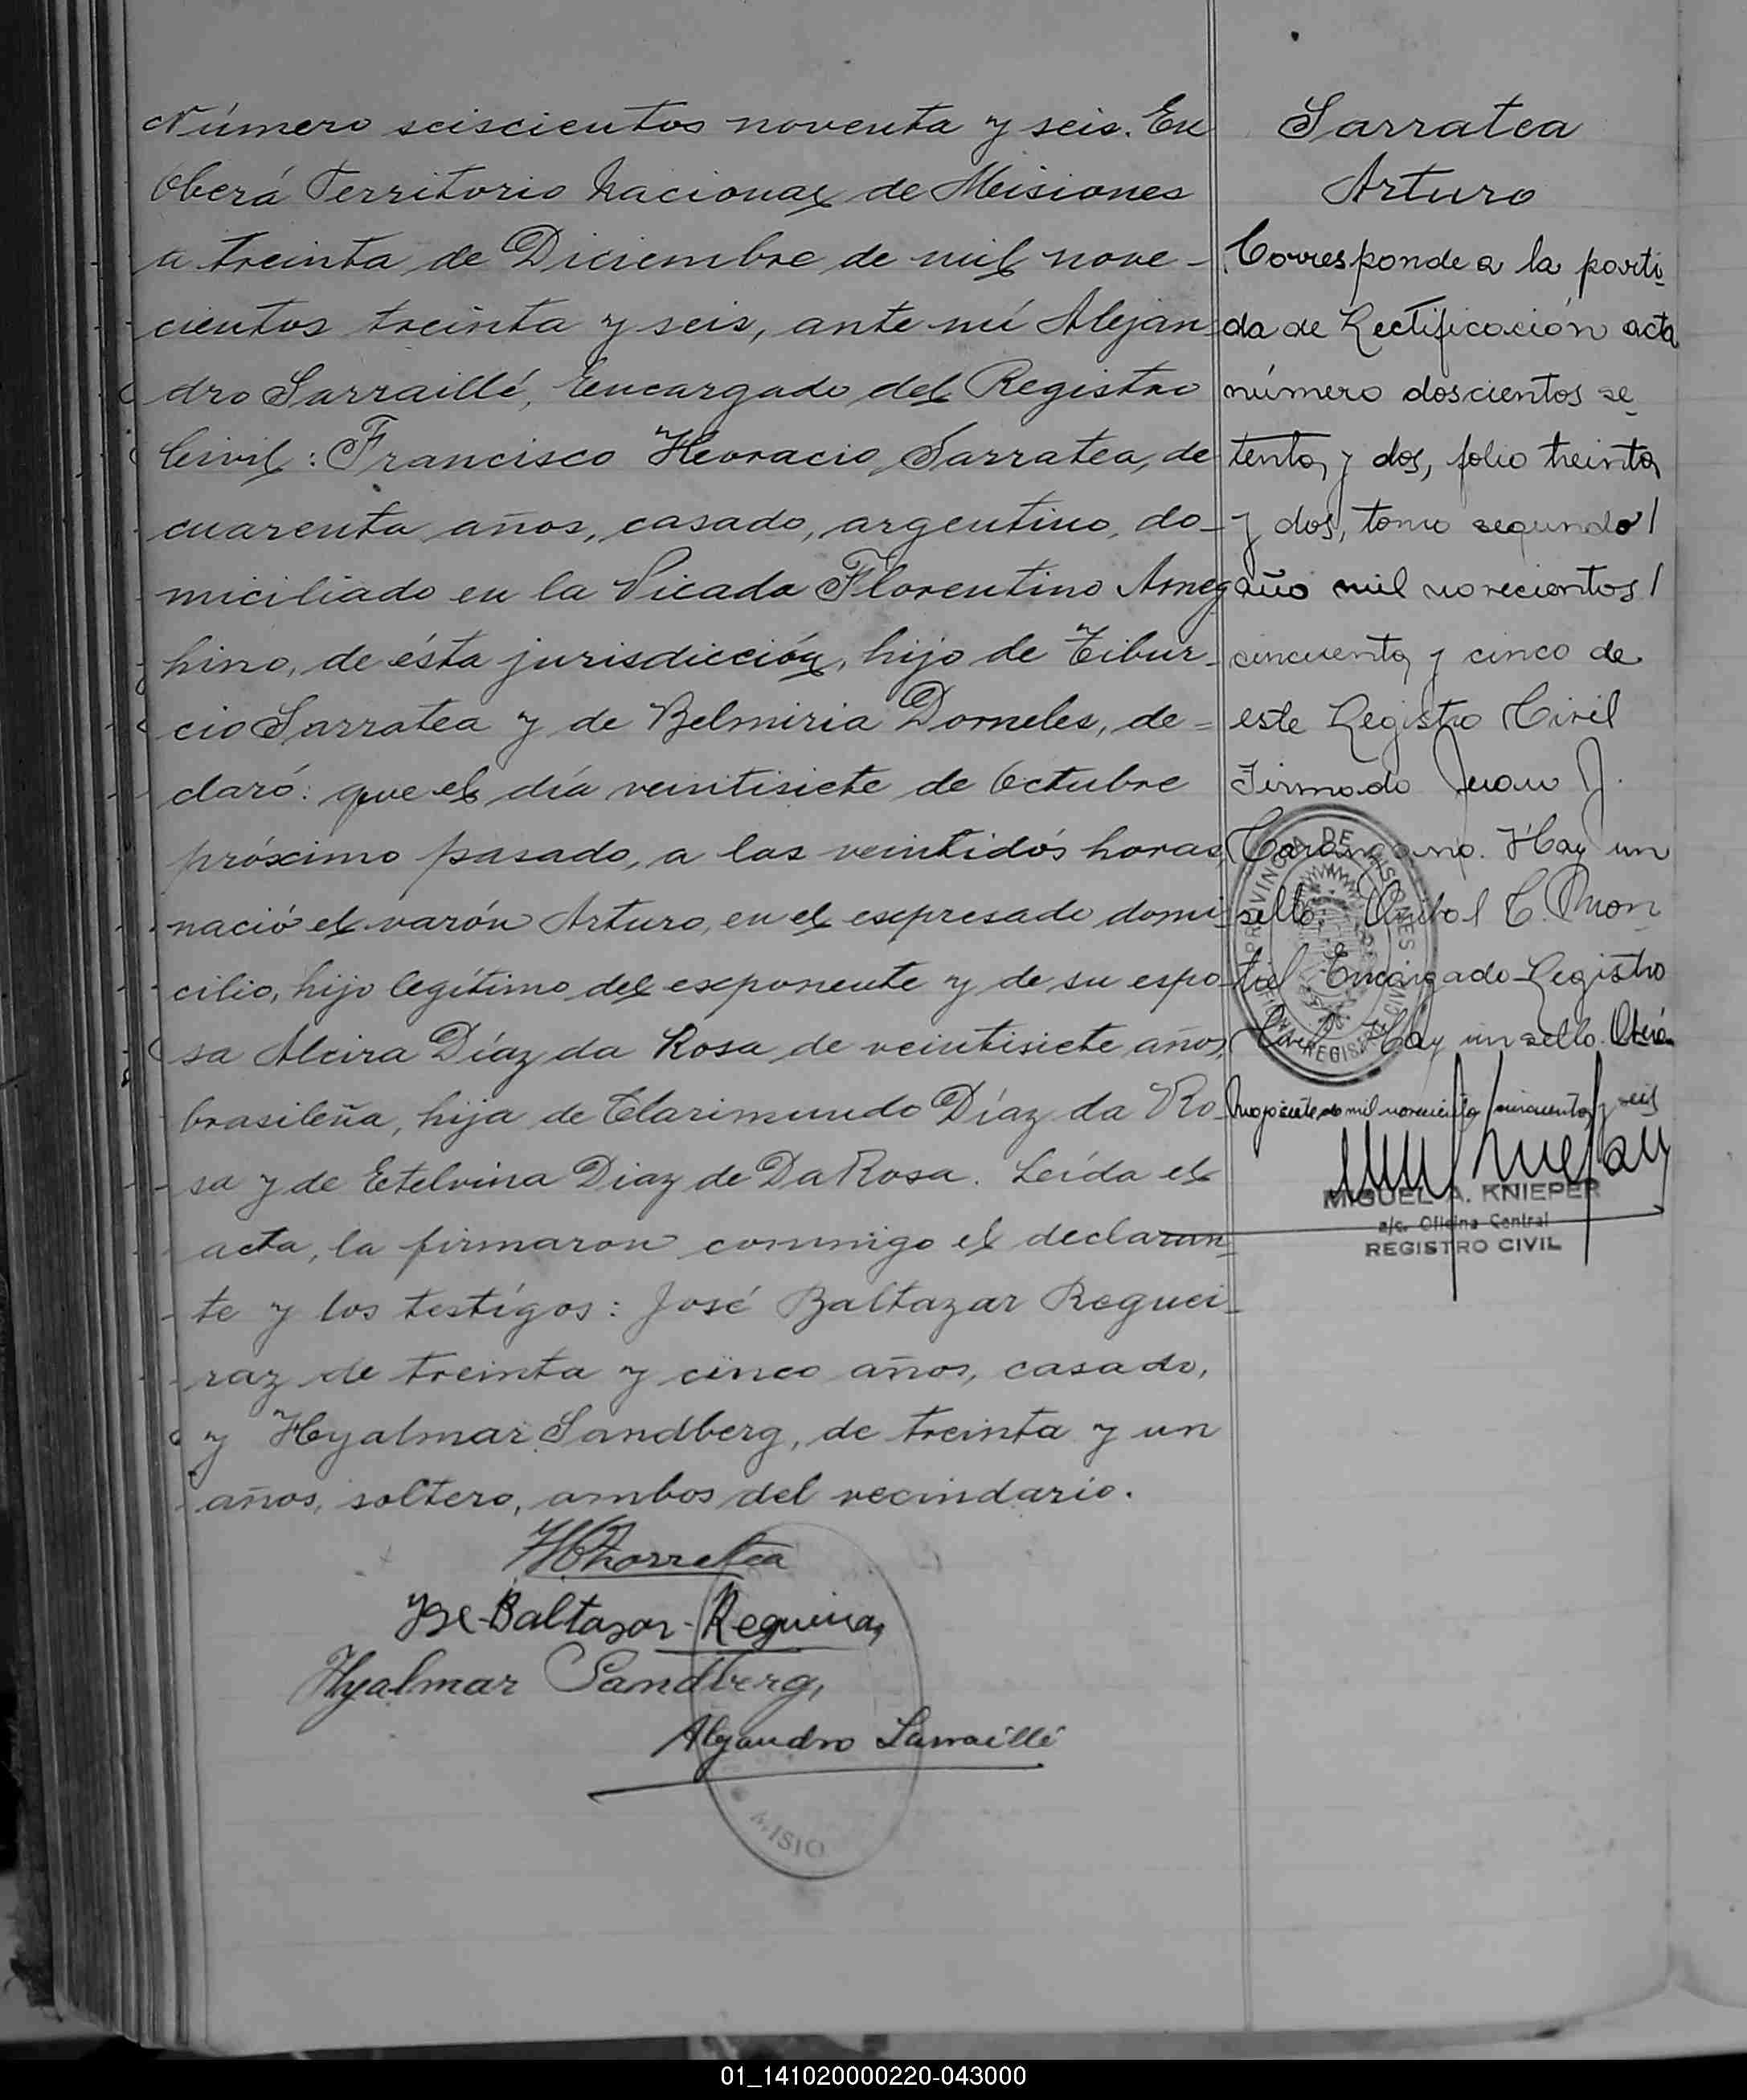 Número seiscientos noventa y seis. En
Oberá Territorio Nacional de Misiones
a treinta de Diciembre de mil nove-
cientos treinta y seis, ante mí Alejan-
dro Sarraillé, Encargado del Registro
Civil: Francisco Heoracio Sarratea, de
cuarenta años, casado, argentino, do-
miciliado en la Picada Florentino Ameg
hino, de ésta jurisdicción, hijo de Tibur-
cio Sarratea y de Belmiria Dorneles, de=
claró: que el día veintisiete de Octubre
próximo pasado, a las veintidós horas,
nació el varón Arturo, en el expresado domi-
cilio, hijo legítimo del exponente y de su espo-
sa Alcira Díaz da Rosa de veintisiete años,
brasileña, hija de Clarimundo Díaz da Ro-
sa y de Etelvina Diaz de Da Rosa. Leída el
acta, la firmaron conmigo el declaran-
te y los testigos: José Baltazar Reguei-
raz de treinta y cinco años, casado,
y Hyalmar Sandberg, de treinta y un
años, soltero, ambos del vecindario.
José Baltazar Regueira
Hyalmar Sandberg,
Alejandro Sarraillé
MISIO
Sarratea
Arturo
Corresponde a la parti
da de Rectificación acta
número doscientos se
tenta y dos, folio treinta
y dos, tomo segundo/
año mil novecientos/
cincuenta y cinco de
este Registro Civil
Firmado Juan J.
Hay un
sello. C. Mon
tiel Encargado Registro
Civil Hay un sello. Oberá
Mayo siete de mil novecientos cincuenta y seis
PROVINCIA DE MISIONES
MIGUEL A. KNIEPER
a/c. Oficina Central
REGISTRO CIVIL
01_141020000220-043000